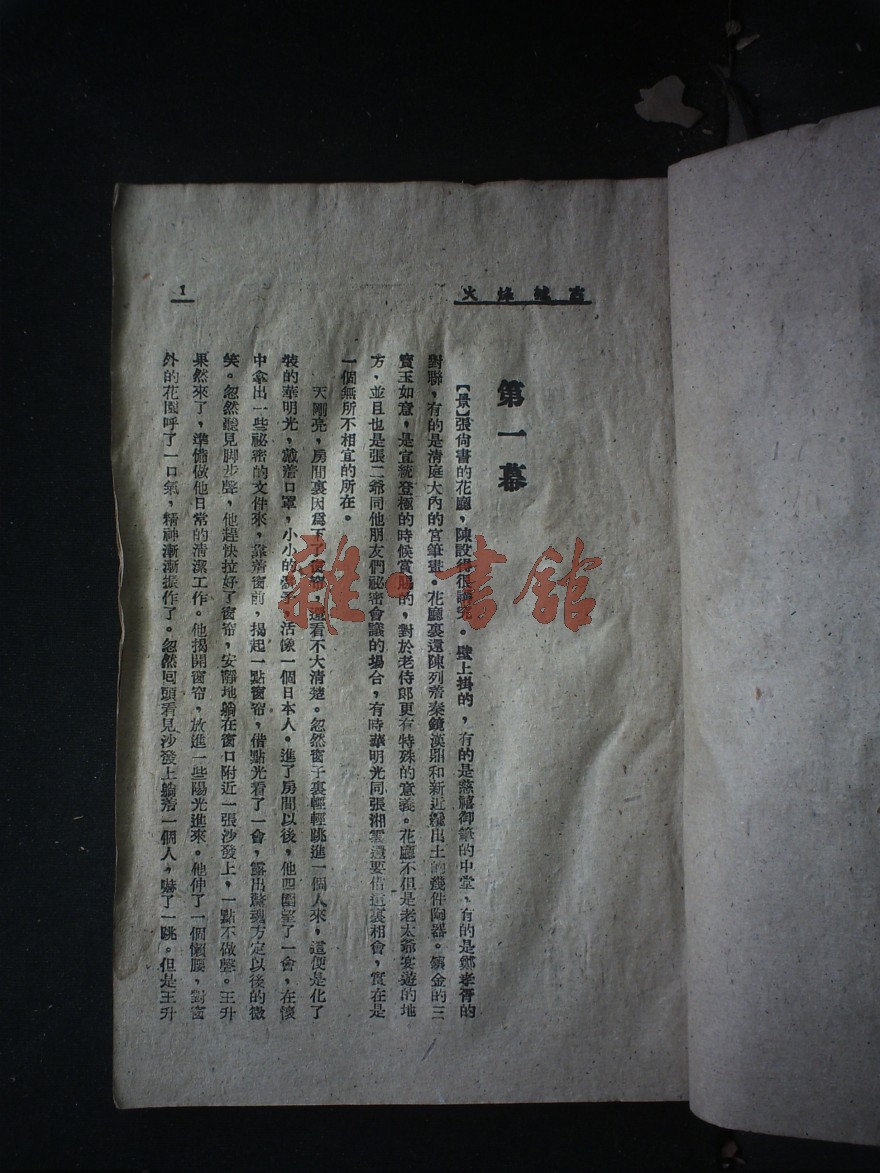 古城烽火
1
第一幕
【景】張尙書的花廳，陳設得很講究。壁上掛的，有的是慈禧御筆的中堂，有的是鄭孝胥的
對聯，有的是清庭大內的宮筆畫。花廳裏還陳列着秦鏡漢鼎和新近纔出土的幾件陶器。鑲金的三
寶玉如意，是宣統登極的時候賞賜的，對於老侍郎更有特殊的意義。花廳不但是老太爺宴遊的地
方，並且也是張二爺同他朋友們祕密會議的場合，有時華明光同張湘雲還要借這裏相會，實在是
一個無所不相宜的所在。
天剛亮，房間裏因爲下了窗帘，還看不大清楚。忽然窗子裏輕輕跳進一個人來，這便是化了
裝的華明光，戴着口罩，小小的鬍子，活像一個日本人。進了房間以後，他四圍望了一會，在懷
中拿出一些祕密的文件來，靠着窗前，揭起一點窗帘，借點光看了一會，露出驚魂方定以後的微
笑。忽然聽見脚步聲，他趕快拉好了窗帘，安靜地躺在窗口附近一張沙發上，一點不做聲。王升
果然來了，準備做他日常的清潔工作。他揭開窗帘，放進一些陽光進來。他伸了一個懶腰，對窗
外的花園呼了一口氣，精神漸漸振作了。忽然囘頭看見沙發上躺着一個人，嚇了一跳。但是王升
雜·書館